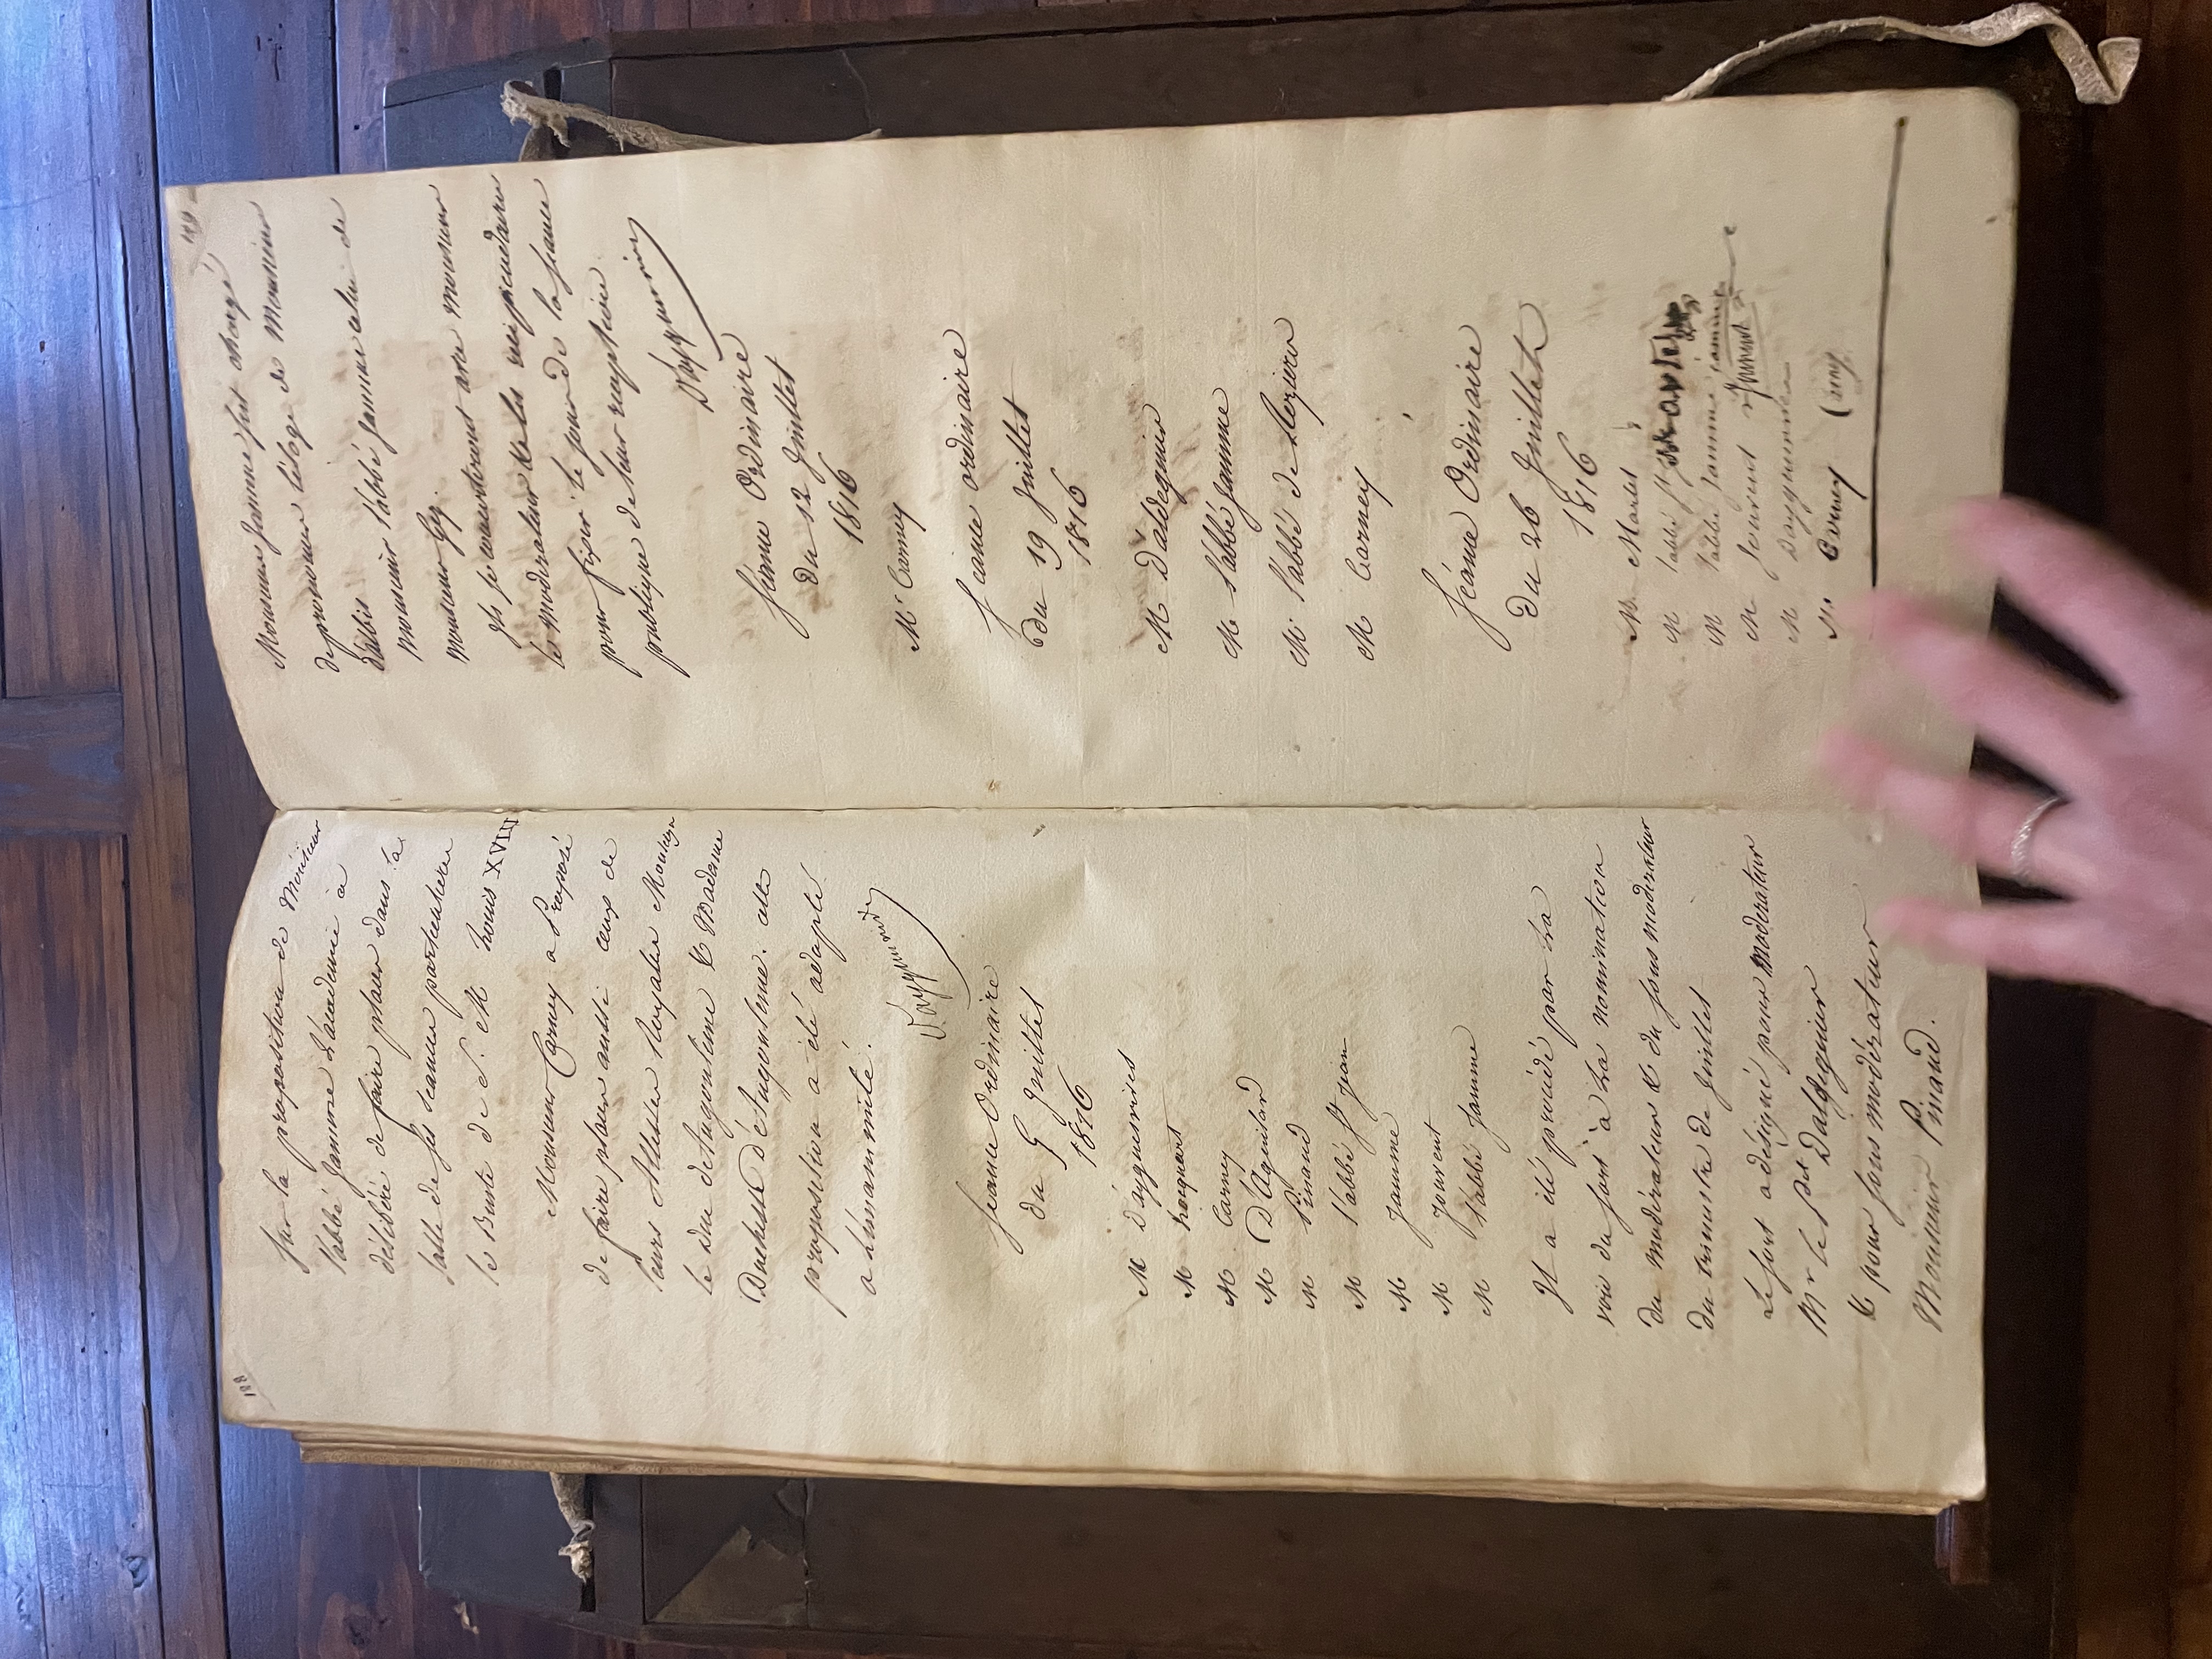 188
Sur la proposition de Monsieur
l'abbé Jamme l'académie a
délibéré de faire placer dans la
salle de ses séances particulieres
le Buste de S. M Louis XVIII
Monsieur Carney a Proposé
de faire placer aussi ceux de
leurs Altesses Royales
le Duc d'Angouleme & Madame
Duchesse d'Angouleme. cette
proposition a été adoptée
a l'unanimité.
Séance Ordinaire
du 5 Juillet
1816
M D'ayguesvives
M
M Carney
M D'Aguilard
M Pinaud
M l'abbé St jean
M Jamme
M Jouvent
M l'abbé Jamme
Il a été procédé par la
voie du sort à la nomination
du modérateur & du sous modérateur
du trimestre de Juillet
Le sort a désigné pour Moderateur
Mr le Pdt Daldeguier
& pour sous modérateur
Monsieur Pinaud.
189
Monsieur Jamme fut chargé
de prononcer l'éloge de Monsieur
d'albis Monsieur l'abbé Jamme celui de
monsieur
ils se concerteront avec monsieur
le Modérateur & les recipiendaires
pour fixer le jour de la séance
publique de leur reception.
Séance Ordinaire
Du 12 Juillet
1816
Mr Carney
Séance ordinaire
du 19 Juillet
1816
M Daldeguier
M l'abbé Jamme
M. l'abbé de Rozieres
M Carney
Séance Ordinaire
Du 26 Juillet
1816
M. Martel
M l'abbé St
M l'abbé Jamme
M Jouvent
M Dayguesvives
M. Carney